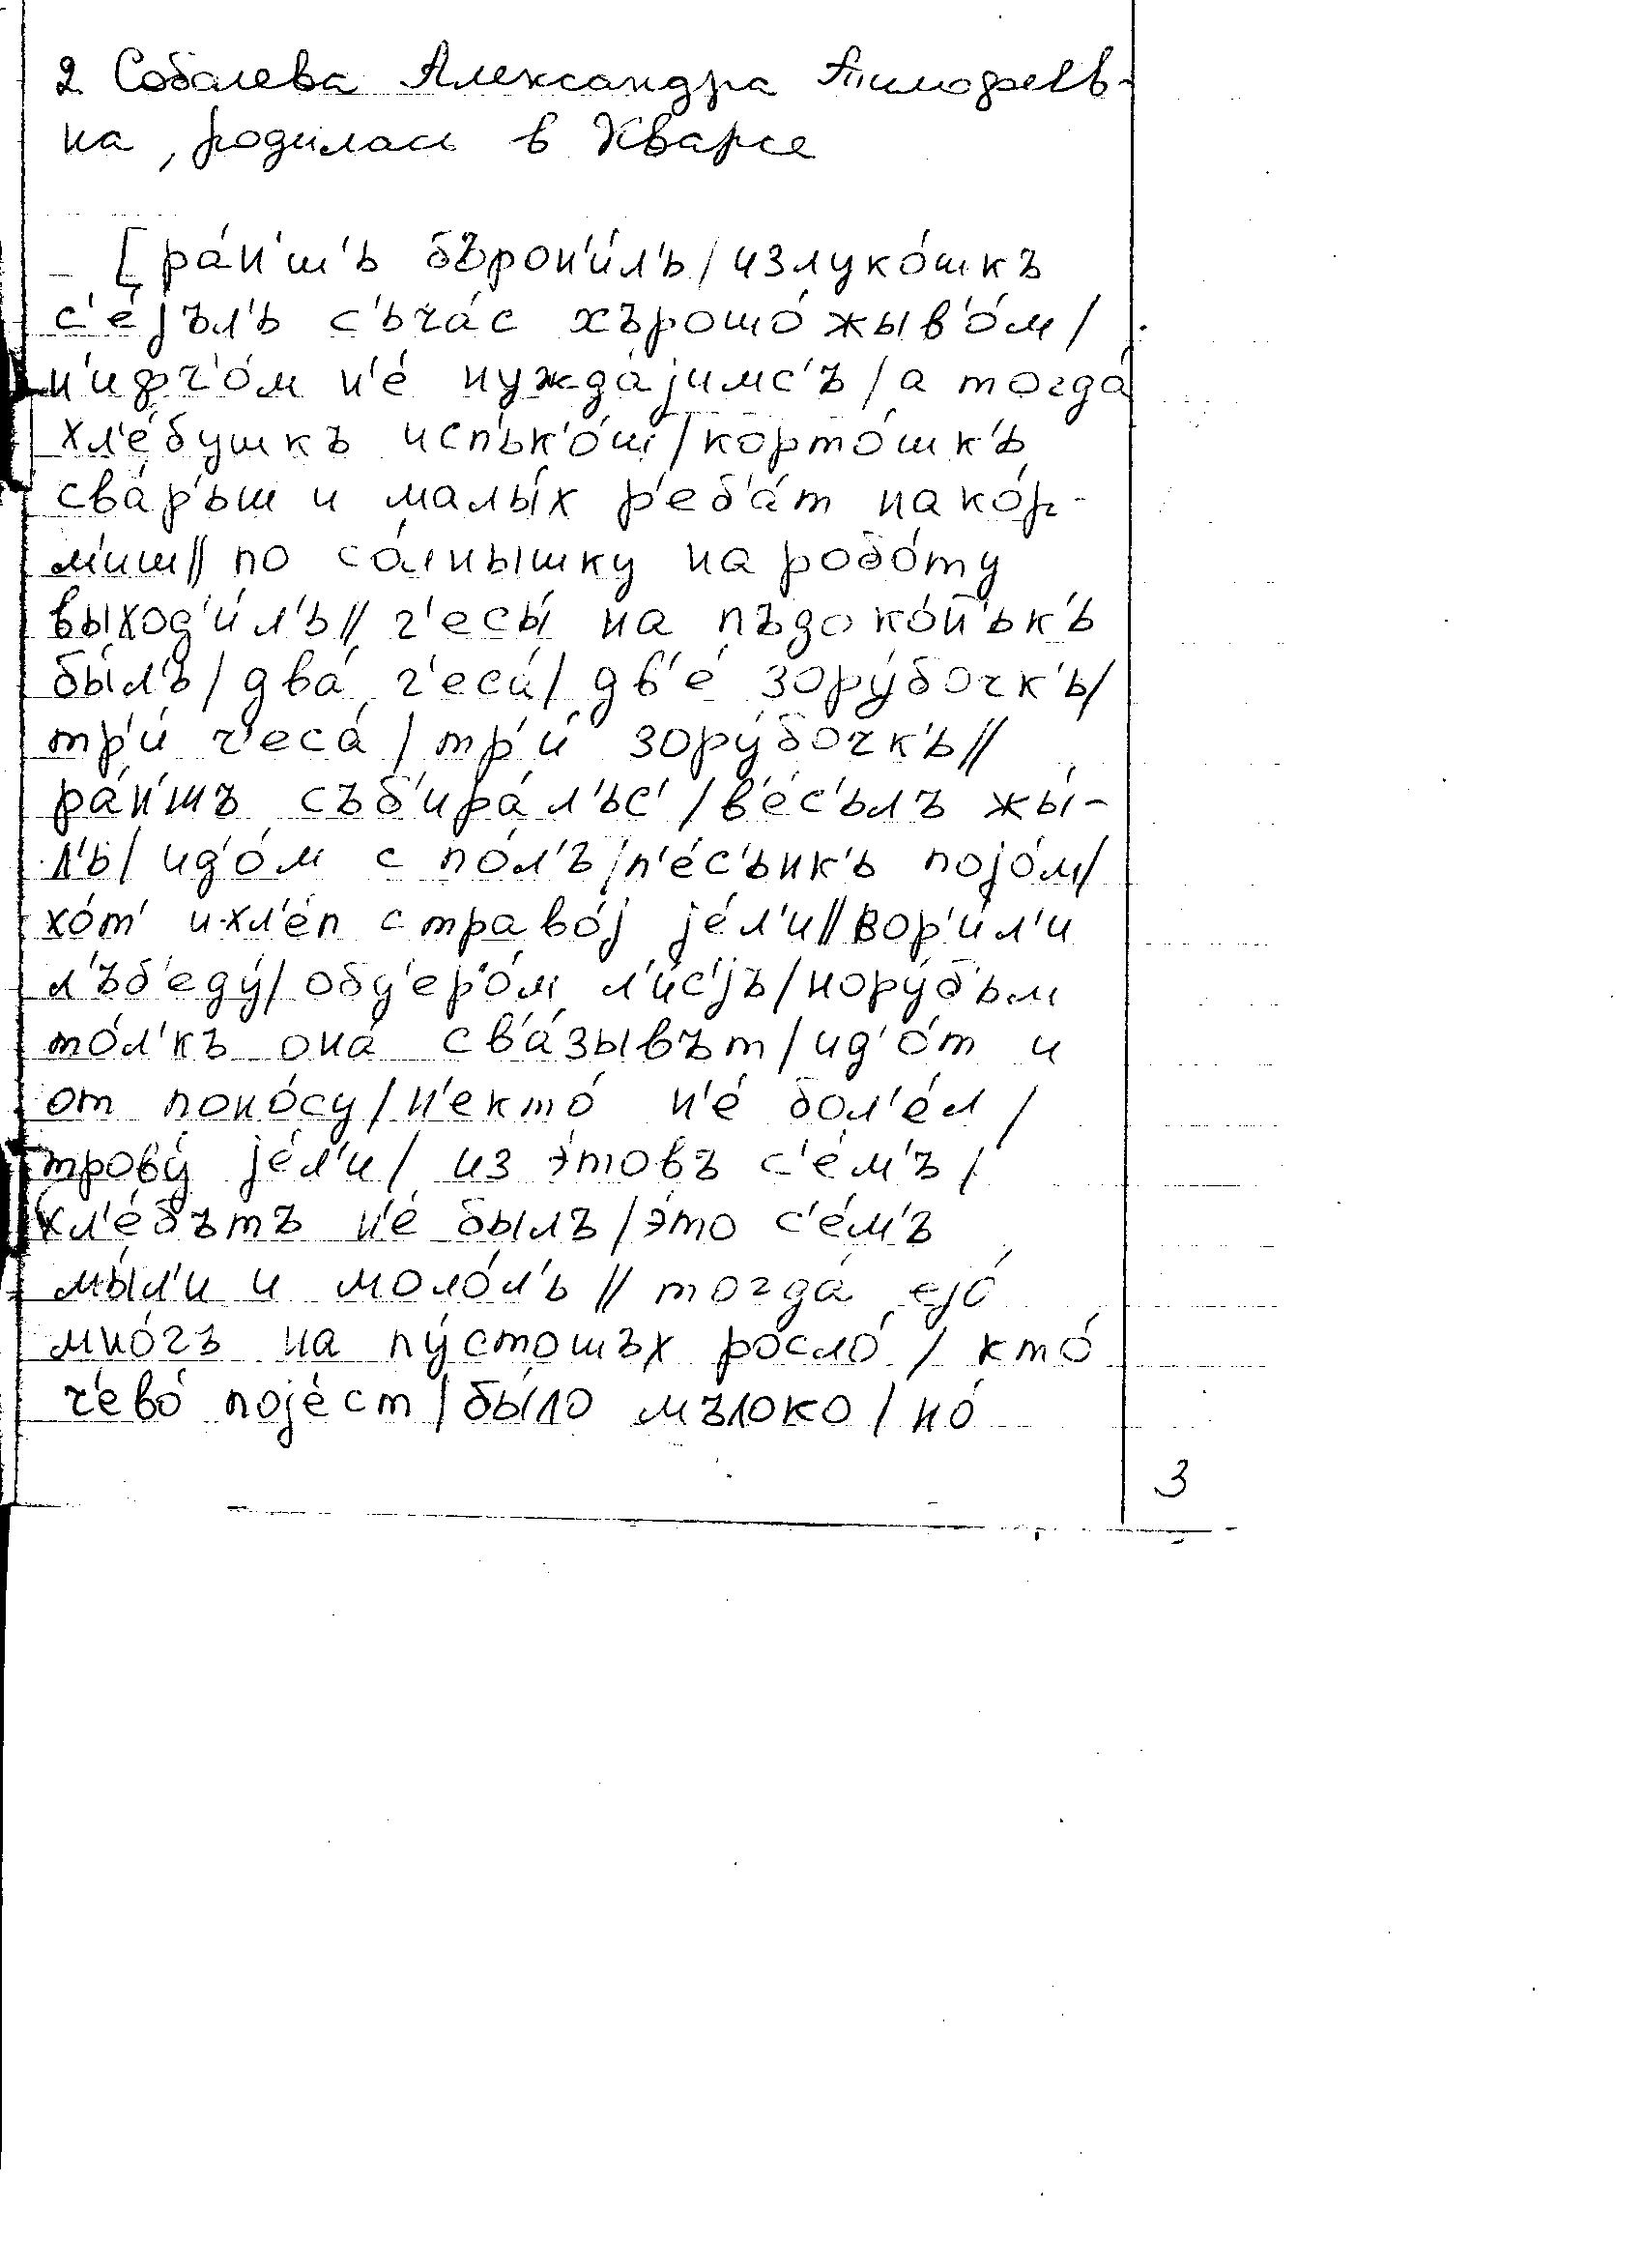 2 Собалева Александра Тимофеев-
на, родилась в Кварсе
[ра́н'ш'ь бърон'и́л'ь/излуко́шкъ
с'е́jъл'ь с'ьча́с хърошо́ жыв'о́м/
н'ифч'о́м н'е́ нужда́jимс'ъ/а тогда́
хл'е́бушкъ испьк'о́ш/корто́шк'ь
сва́р'ьш и малы́х р'еб'а́т нако́р-
м'иш// по со́лнышку на робо́ту
выход'и́л'ь// ч'есы́ на пъдоко́н'ьк'ь
бы́л'ь/два́ ч'еса́/дв'е́ зору́бочк'ь/
тр'и́ ч'еса́/тр'и́ зору́бочк'ь//
ра́н'шъ съб'ира́л'ьс'/в'е́с'ьлъ жы́-
л'ь/ид'о́м с по́л'ъ/п'е́с'ьнк'ь поjо́м/
хо́т' и хл'е́п с траво́j jе́л'и//вор'и́л'и
л'ъб'еду́/обд'ер'о́м л'и́с'jъ/нору́б'ьм
то́л'къ она́ св'а́зывът/ид'о́т и
от поно́су/н'екто́ н'е́ бол'е́л/
трову́ jе́л'и/из э́товъ с'е́м'ъ/
хл'е́бътъ н'е́ былъ/э́то с'е́м'ъ
мы́л'и и моло́л'ь// тогда́ еjо́
мно́гъ на пу́стошъх росло́/кто́
ч'ево́ поjе́ст/бы́ло мълоко/но́
3